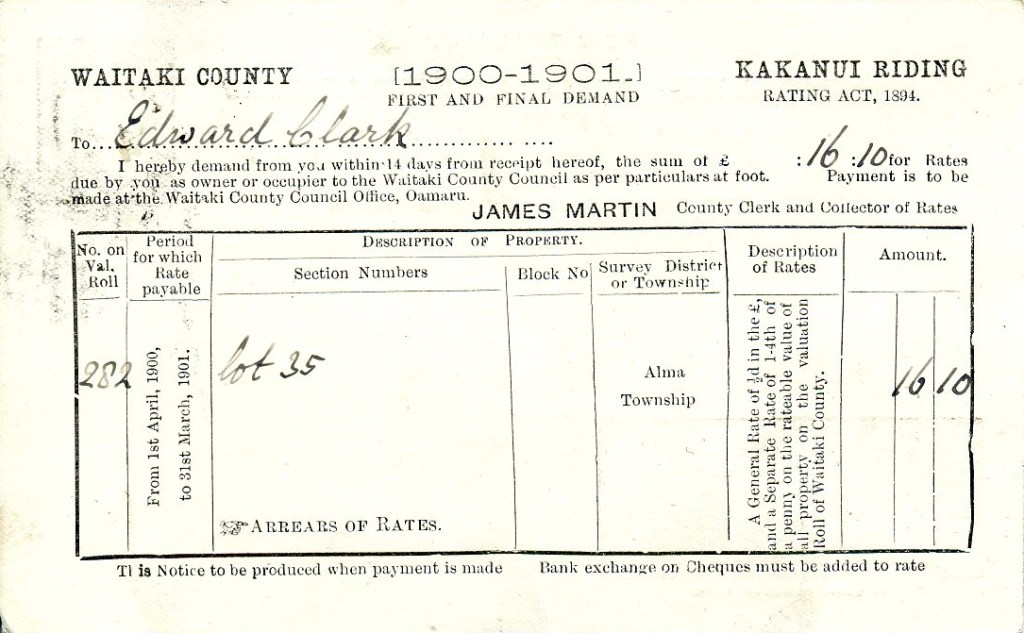 WAITAKI COUNTY
[1900-1901.]
KAKANUI RIDING
FIRST AND FINAL DEMAND
RATING ACT, 1894.
To...Edward Clark.................
I hereby demand from you within 14 days from receipt hereof, the sum of £ :16 :10 for Rates
due by you as owner or occupier to the Waitaki County Council as per particulars at foot. Payment is to be
made at the Waitaki County Council Office, Oamaru.
JAMES MARTIN County Clerk and Collector of Rates
No. on
Val.
Roll
Period
for which
Rate
payable
DESCRIPTION OF PROPERTY.
Section Numbers
Block No
Survey District
or Township
Description
of Rates
Amount.
282
From 1st April, 1900,
to 31st March, 1901.
lot 35
Alma
Township
A General Rate of ½d in the £,
and a Separate Rate of 1-4th of
a penny on the rateable value of
all property on the valuation
Roll of Waitaki County.
16 10
☞ ARREARS OF RATES.
This Notice to be produced when payment is made
Bank exchange on Cheques must be added to rate